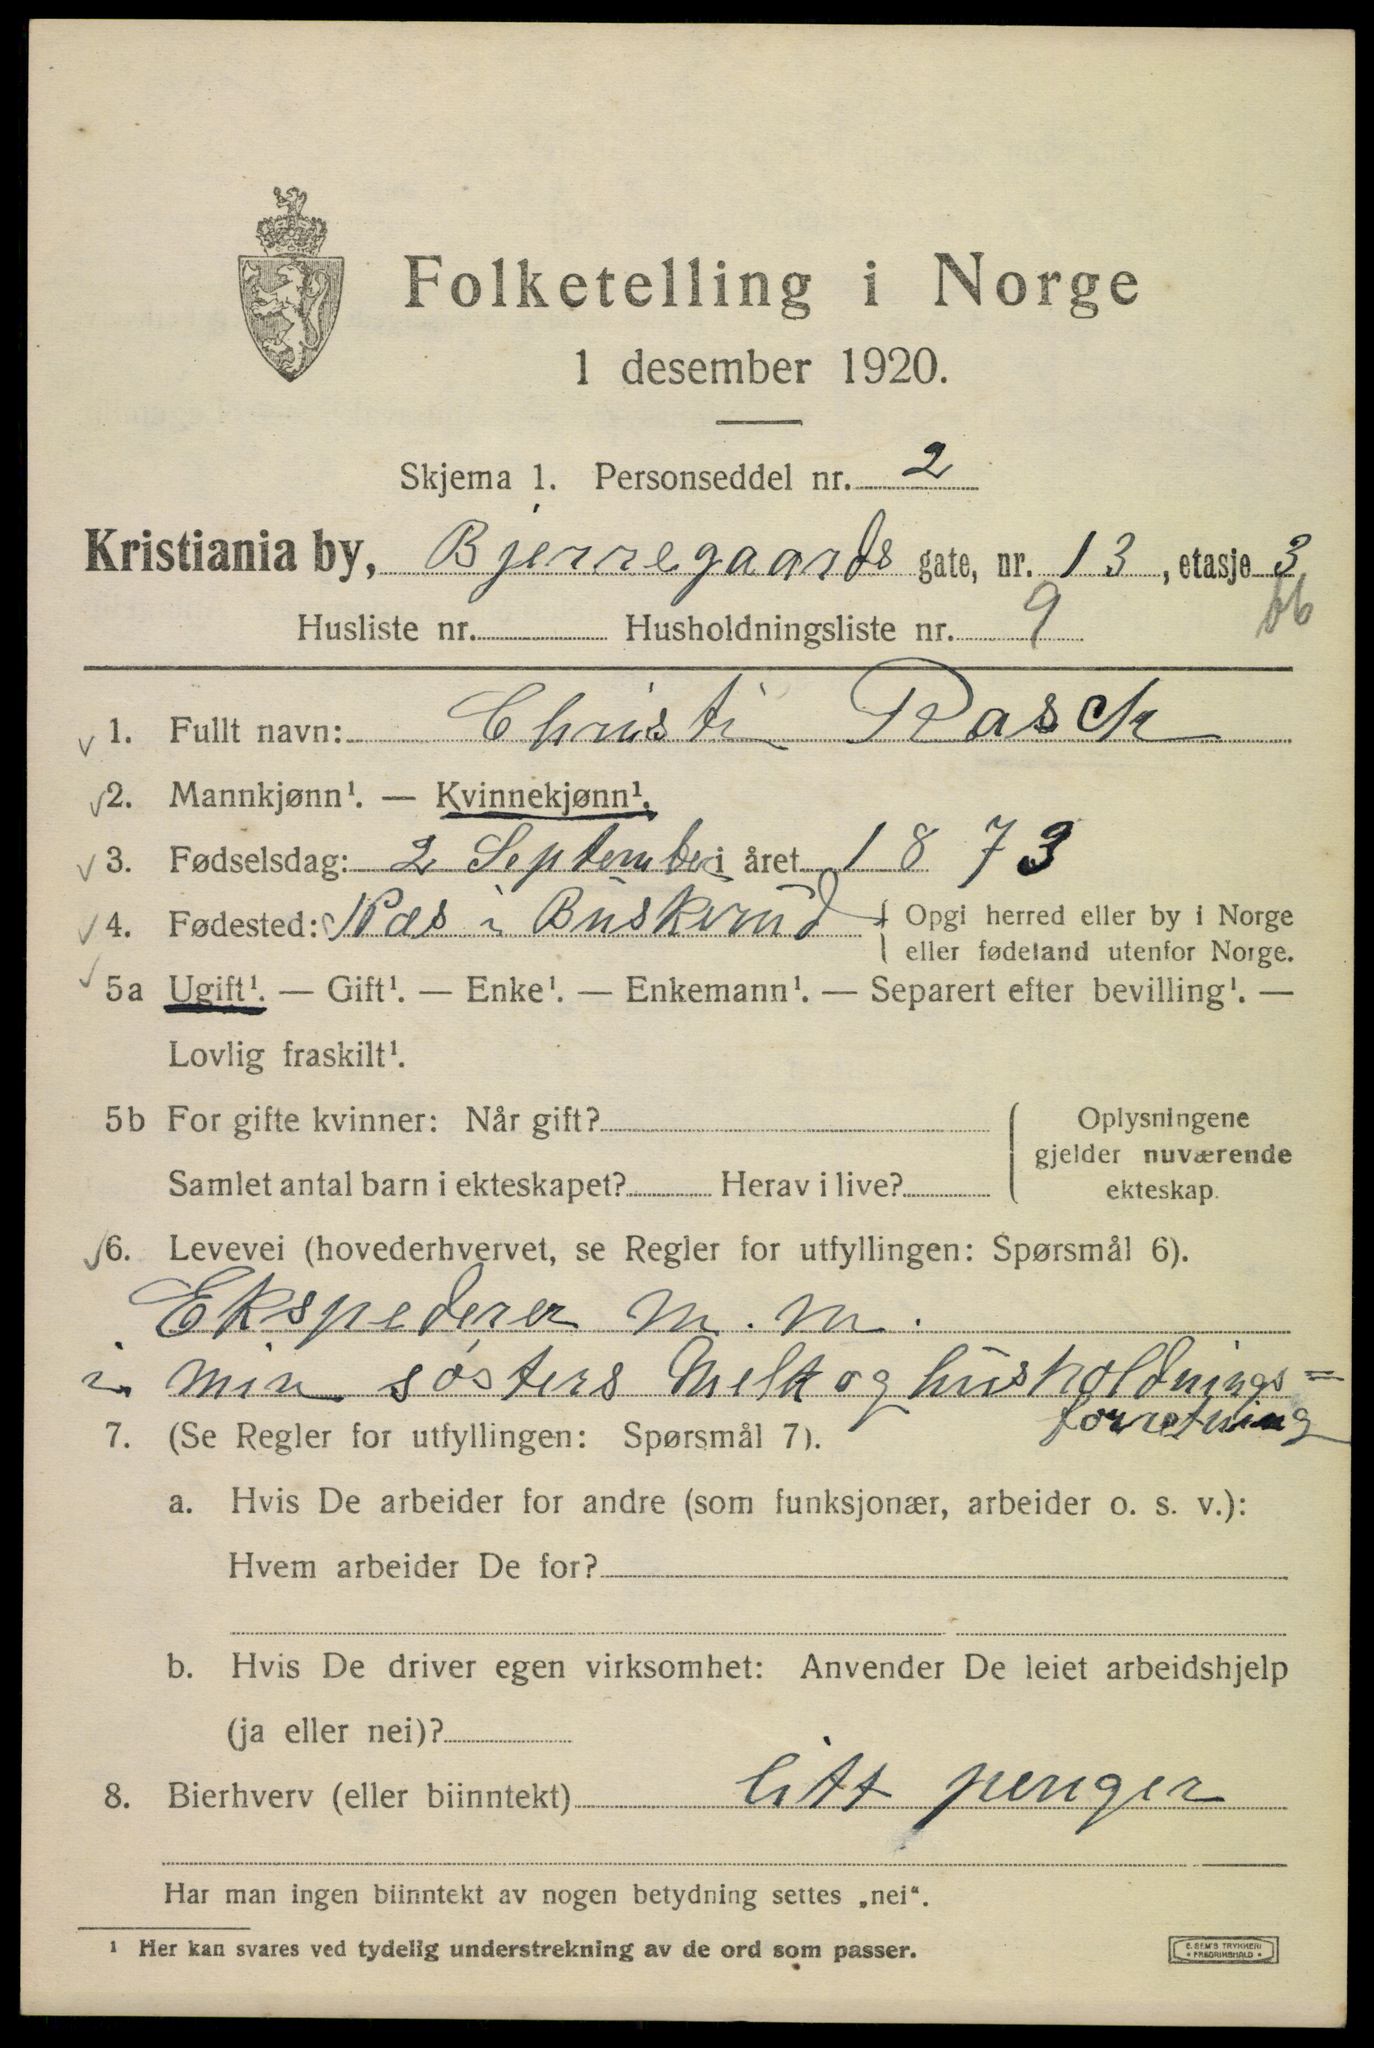 Folketelling i Norge
1 desember 1920.
Skjema 1. Personseddel nr. 2
Kristiania by, Bjerregaards gate, nr. 13, etasje 3
Husliste nr. Husholdningsliste nr. 9 bb
√ 1. Fullt navn: Christi Rasch
√ 2. Mannkjønn¹. — Kvinnekjønn¹.
√ 3. Fødselsdag: 2 September i året 1873
√ 4. Fødested: Næs i Buskerud { Opgi herred eller by i Norge
eller fødeland utenfor Norge.
√ 5a Ugift¹. — Gift¹. — Enke¹. — Enkemann¹. — Separert efter bevilling¹. —
Lovlig fraskilt¹.
5b For gifte kvinner: Når gift? { Oplysningene
gjelder nuværende
Samlet antal barn i ekteskapet? Herav i live? ekteskap.
√ 6. Levevei (hovederhvervet, se Regler for utfyllingen: Spørsmål 6).
Ekspederer m.m.
i min søsters Melk og husholdnings=
forretning
7. (Se Regler for utfyllingen: Spørsmål 7).
a. Hvis De arbeider for andre (som funksjonær, arbeider o. s. v.):
Hvem arbeider De for?
b. Hvis De driver egen virksomhet: Anvender De leiet arbeidshjelp
(ja eller nei)?
8. Bierhverv (eller biinntekt) litt penger
Har man ingen biinntekt av nogen betydning settes „nei“.
¹ Her kan svares ved tydelig understrekning av de ord som passer.
E. SEM'S TRYKKERI
* FREDRIKSHALD *